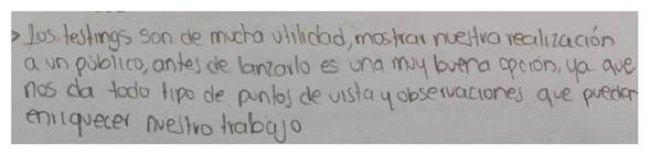 > Los testings son de mucha utilidad, mostrar nuestra realización
a un público, antes de lanzarlo es una muy buena opción, ya que
nos da todo tipo de puntos de vista y observaciones que pueden
enriquecer nuestro trabajo